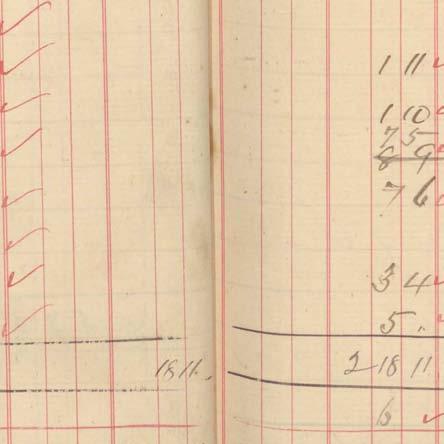 1 11
1 10
7 5
8 9
7 6
3 4
5 "
18 11.
2 18 11
6